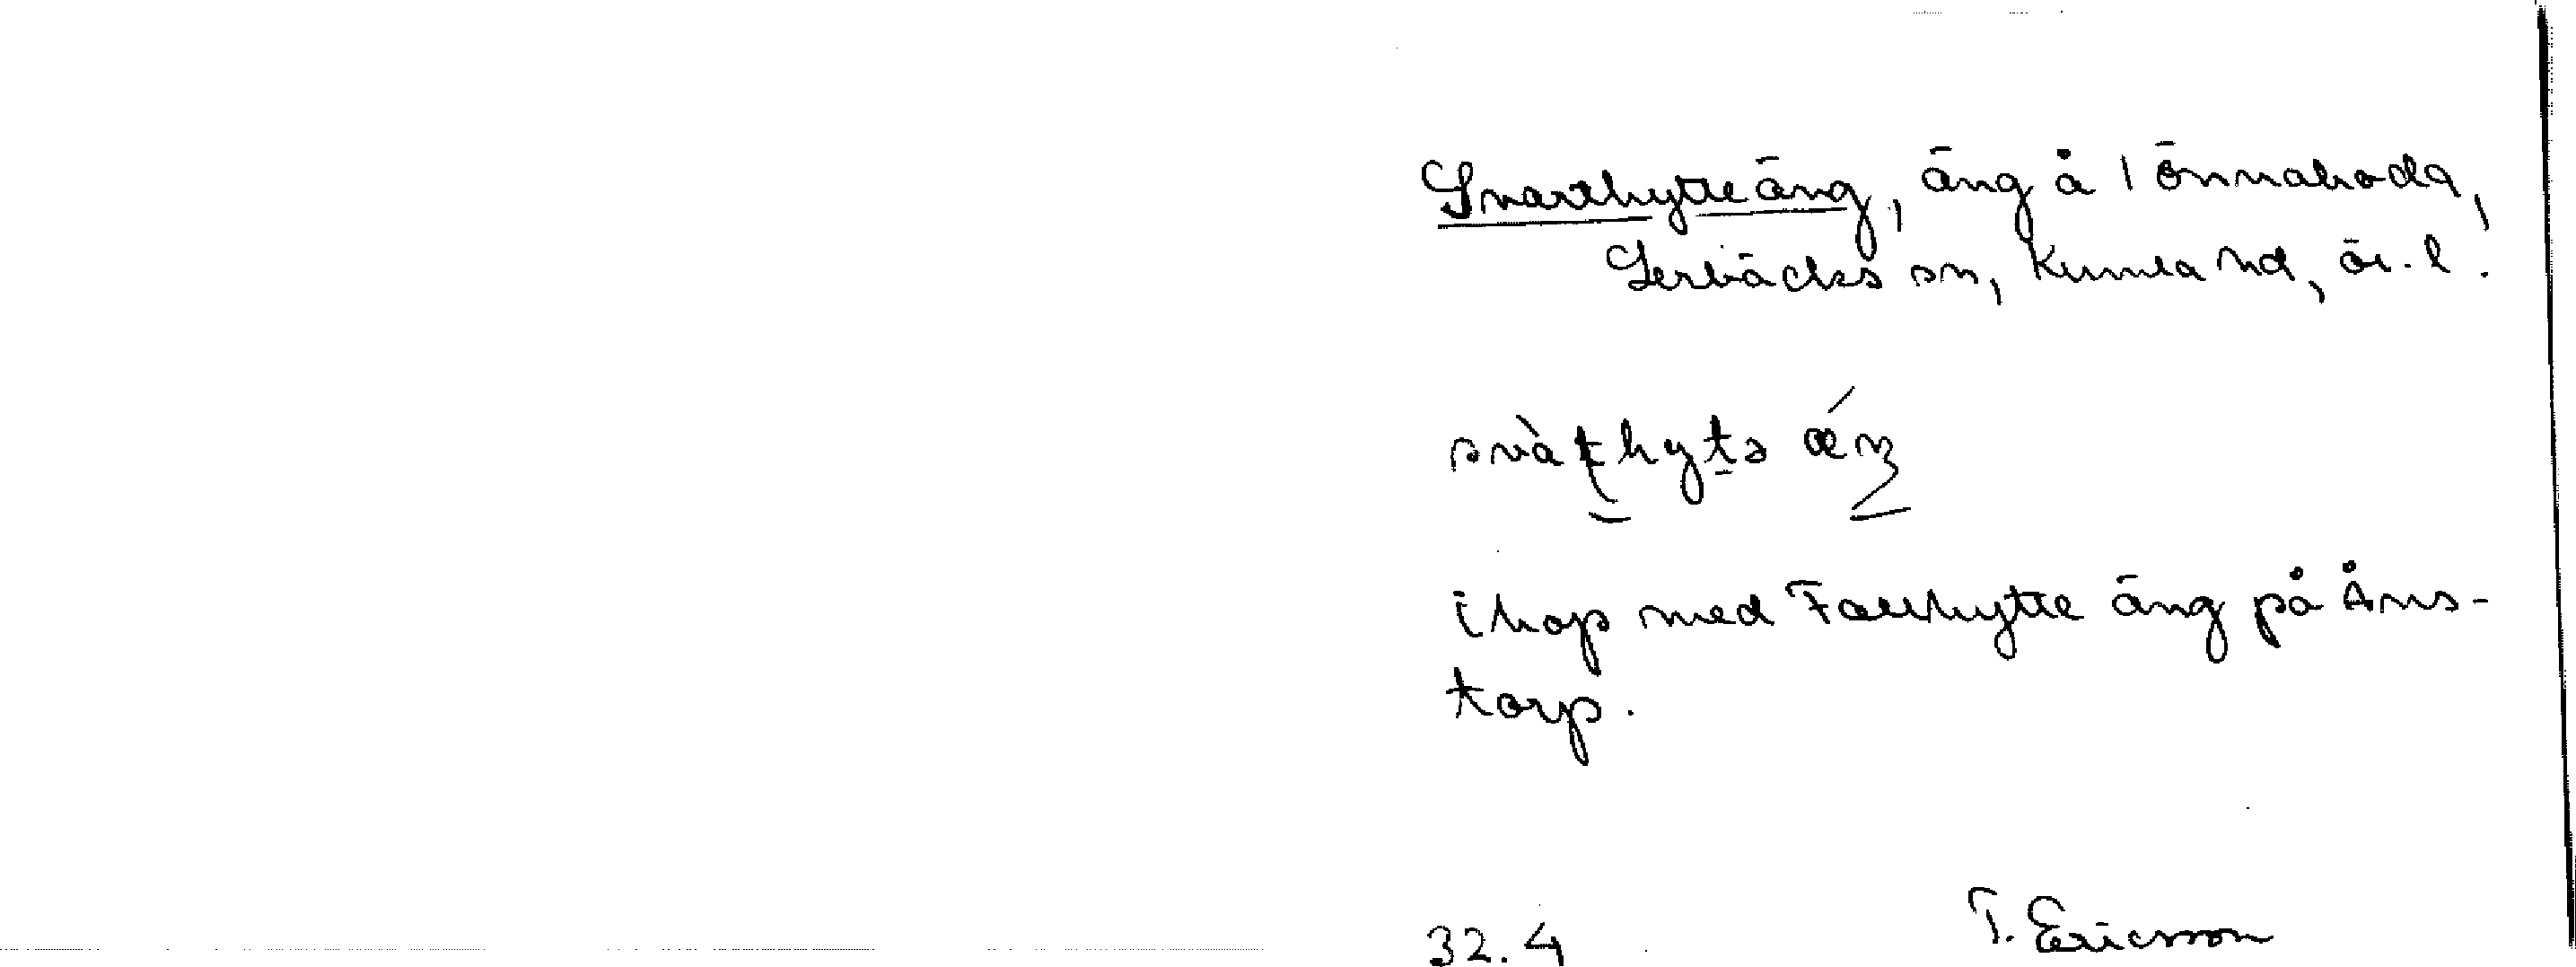 Svarthytteäng, äng å 1 Önnaboda,
Lerbäcks sn, Kumla hd, ör. l.
svàṭhytə ǽŋ
ihop med Fallhytte äng på Åns-
torp.
32.4 T. Ericsson